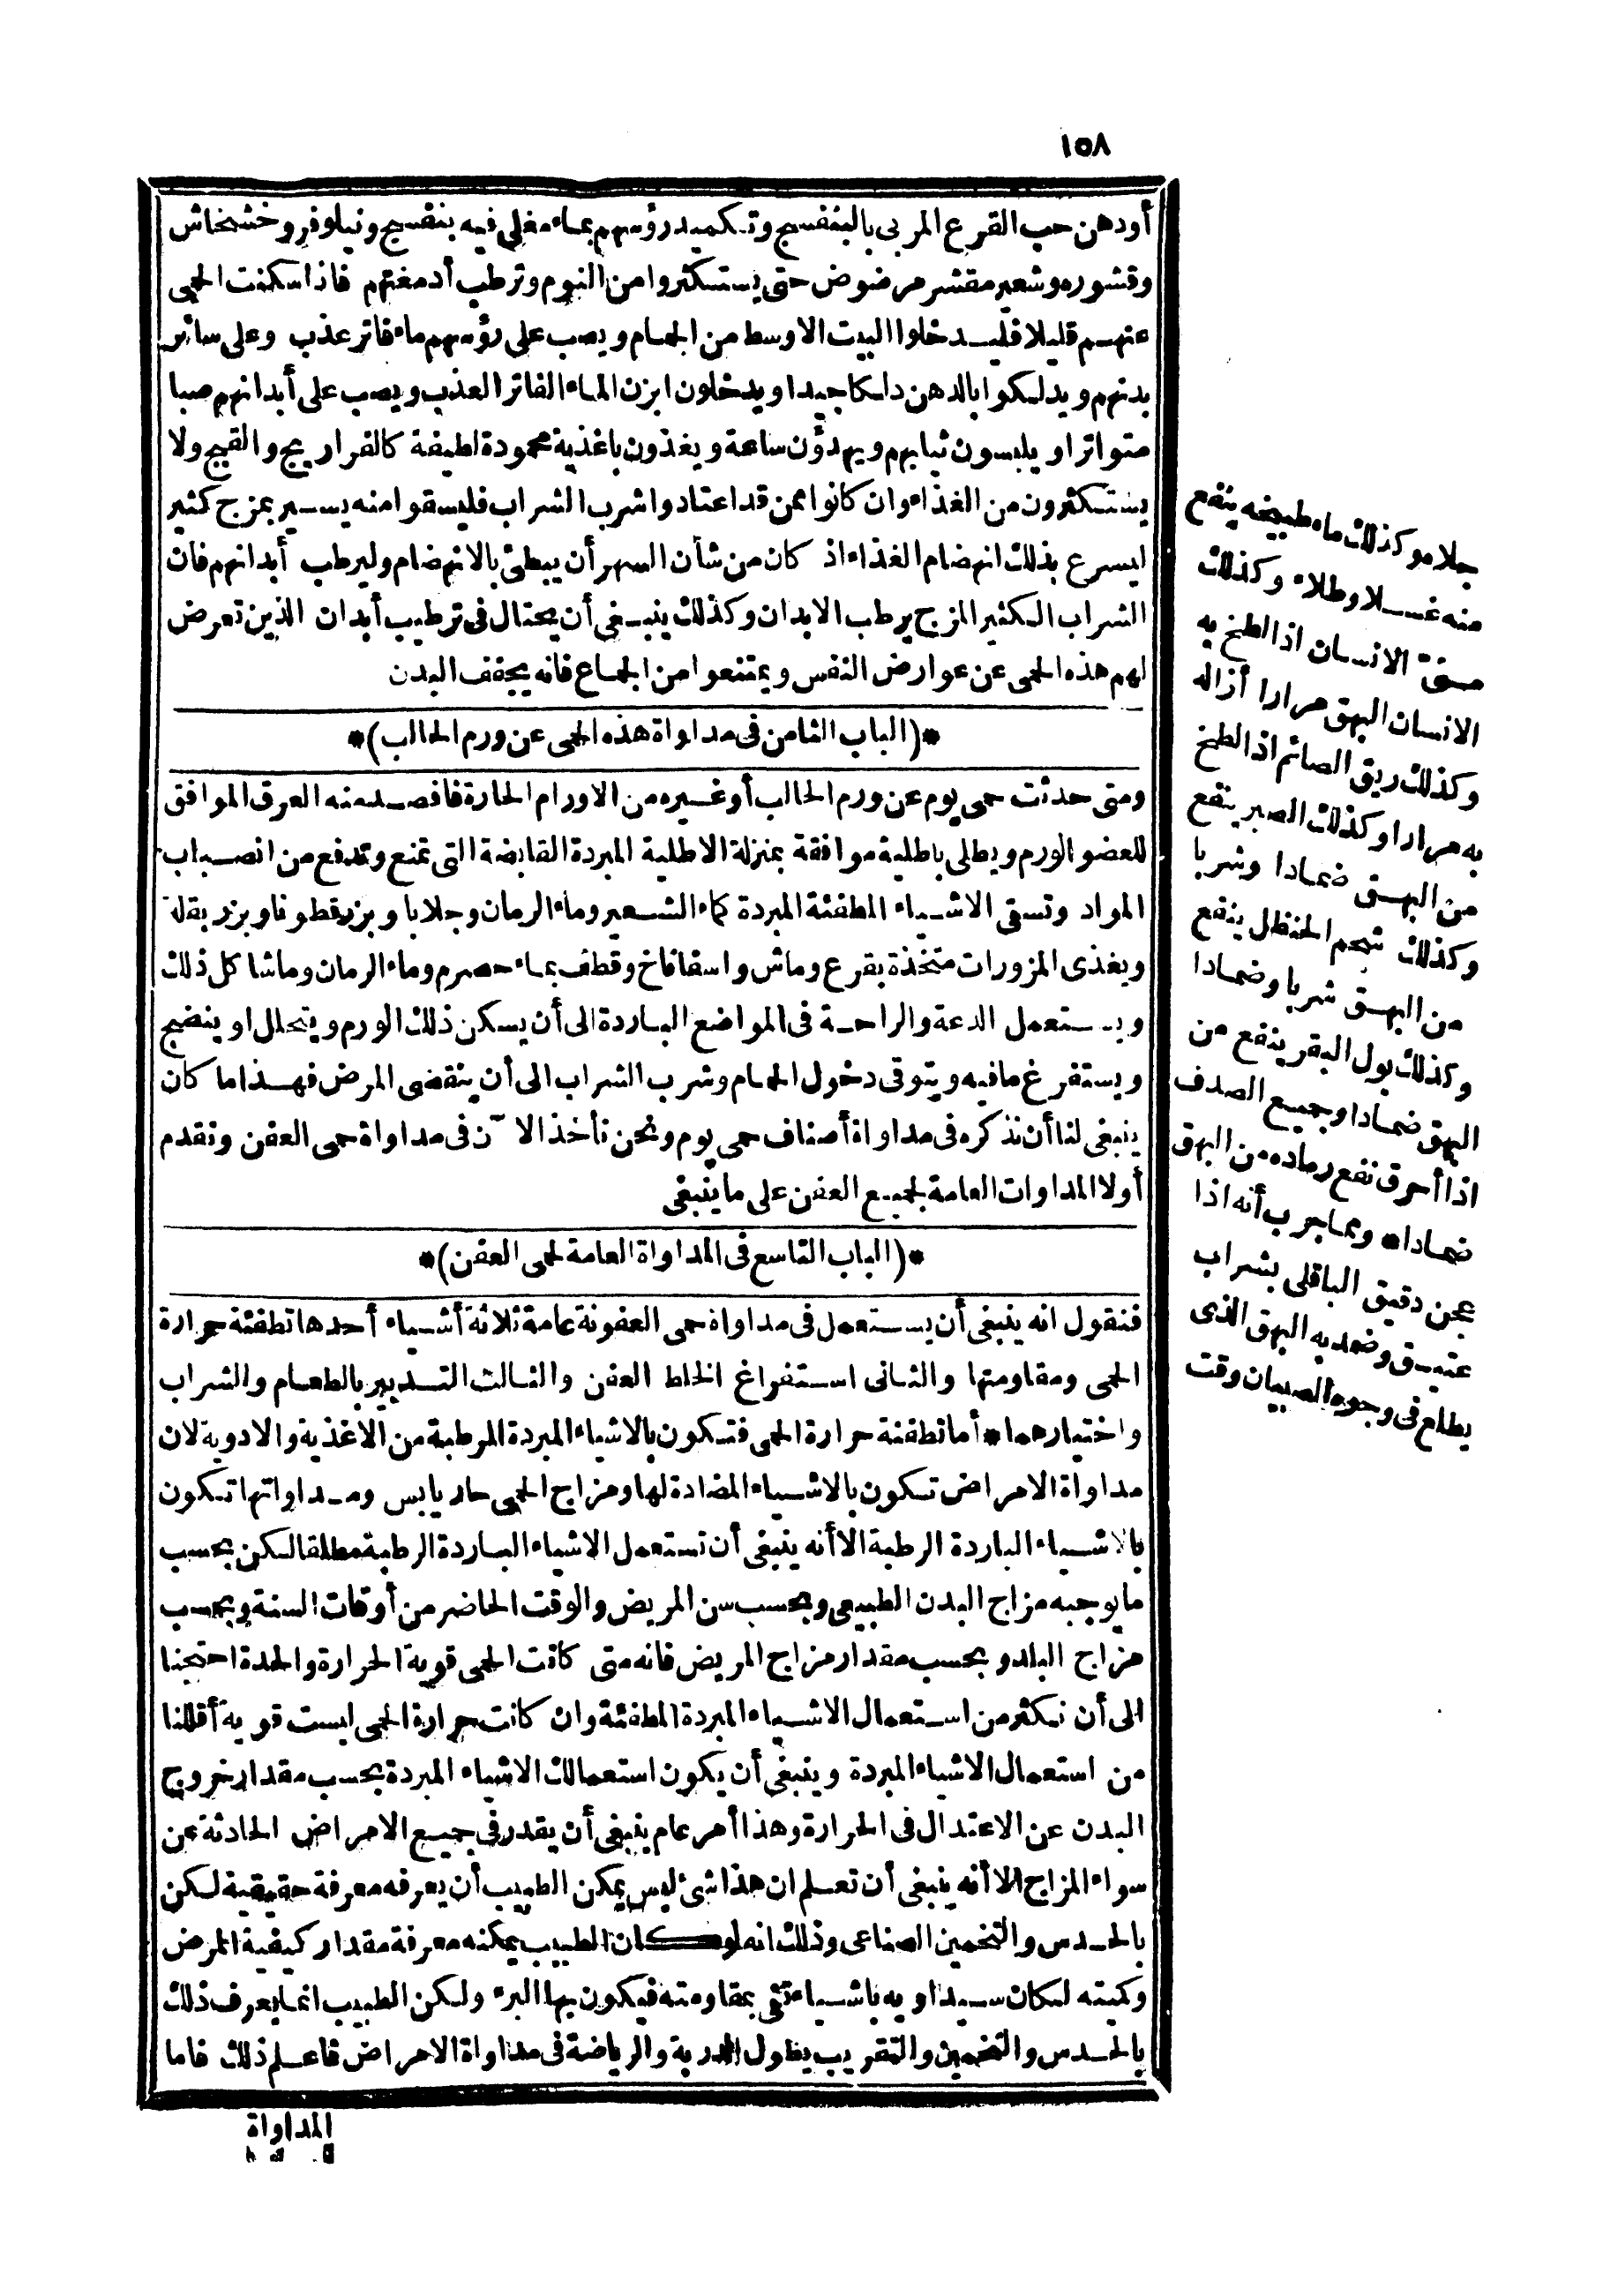 ١٥٨
أودهن حب القرع المربى بالبنفسج وتكميد رؤسهم بماء مغلى فيه بنفسج ونيلوفر وخشخاش
وقشوره وشعير مقشر مرضوض حتى يستكثروا من النوم وترطب أدمغتهم فاذا سكنت الحمى
عنهم قليلا فليدخلوا البيت الاوسط من الحمام ويصب على رؤسهم ماء فاتر عذب وعلى سائر
بدنهم ويدلكوا بالدهن دلكا جيدا ويدخلون ابزن الماء الفاتر العذب ويصب على أبدانهم صبا
متواترا ويلبسون ثيابهم ويهدؤن ساعة ويغذون باغذية محمودة لطيفة كالفراريج والقبج ولا
يستكثرون من الغذاء وان كانوا ممن قد اعتادوا شرب الشراب فليسقوا منه يسير بمزج كثير
ليسرع بذلك انهضام الغذاء اذ كان من شأن السهر أن يبطئ بالانهضام وليرطب أبدانهم فان
الشراب الكثير المزج يرطب الابدان وكذلك ينبغى أن يحتال فى ترطيب أبدان الذين تعرض
لهم هذه الحمى عن عوارض النفس ويمتنعوا من الجماع فانه يجفف البدن
*(الباب الثامن فى مداواة هذه الحمى عن ورم الحالب)*
ومتى حدثت حمى يوم عن ورم الحالب أو غيره من الاورام الحارة فافصد منه العرق الموافق
للعضو الورم ويطلى باطلية موافقة بمنزلة الاطلية المبردة القابضة التى تمنع وتدفع من انصباب
المواد وتسقى الاشياء المطفئة المبردة كماء الشعير وماء الرمان وجلابا وبزرقطونا وبزر بقلة
ويغذى المزورات متخذة بقرع وماش واسفاناخ وقطف بماء حصرم وماء الرمان وماشا كل ذلك
ويستعمل الدعة والراحة فى المواضع الباردة الى أن يسكن ذلك الورم ويتحلل او ينضج
ويستفرغ مافيه ويتوقى دخول الحمام وشرب الشراب الى أن ينقضى المرض فهذا ما كان
ينبغى لنا أن نذكره فى مداواة أصناف حمى يوم ونحن نأخذ الآن فى مداواة حمى العفن ونقدم
أولا المداوات العامة لجميع العفن على ما ينبغى
*(الباب التاسع فى المداواة العامة لحمى العفن)*
فنقول انه ينبغى أن يستعمل فى مداواة حمى العفونة عامة ثلاثة أشياء أحدها تطفئة حرارة
الحمى ومقاومتها والثانى استفراغ الخلط العفن والثالث التدبير بالطعام والشراب
واختيارهما * أما تطفئة حرارة الحمى فتكون بالاشياء المبردة المرطبة من الاغذية والادوية لان
مداواة الامراض تكون بالاشياء المضادة لها ومزاج الحمى حار يابس ومداواتها تكون
بالاشياء الباردة الرطبة الا أنه ينبغى أن تستعمل الاشياء الباردة الرطبة مطلقا لكن بحسب
ما يوجبه مزاج البدن الطبيعى وبحسب سن المريض والوقت الحاضر من أوقات السنة وبحسب
مزاج البلد وبحسب مقدار مزاج المريض فانه متى كانت الحمى قوية الحرارة والحدة احتجنا
الى أن نكثر من استعمال الاشياء المبردة المطفئة وان كانت حرارة الحمى ليست قوية أقللنا
من استعمال الاشياء المبردة وينبغى أن يكون استعمالك الاشياء المبردة بحسب مقدار خروج
البدن عن الاعتدال فى الحرارة وهذا أمر عام ينبغى أن يقدر فى جميع الامراض الحادثة عن
سواء المزاج الا أنه ينبغى أن تعلم ان هذا شئ ليس يمكن الطبيب أن يعرفه معرفة حقيقية لكن
بالحدس والتخمين الصناعى وذلك انه لو كان الطبيب يمكنه معرفة مقدار كيفية المرض
وكميته لكان سيداويه باشياء تفى بمقاومته فيكون بها البرء ولكن الطبيب انما يعرف ذلك
بالحدس والتخمين والتقريب بطول الدربة والرياضة فى مداواة الامراض فاعلم ذلك فاما
المداواة
جلاء وكذلك ماء طبيخه ينفع
منه غسلا وطلاء وكذلك
الانسان اذا لطخ به
الانسان البهق مرارا أزاله
وكذلك ريق الصائم اذا لطخ
به مرارا وكذلك الصبر ينفع
من البهق ضمادا وشربا
وكذلك شحم الحنظل ينفع
من البهق شربا وضمادا
وكذلك بول البقر ينفع من
البهق ضمادا وجميع الصدف
اذا أحرق نفع رماده من البهق
ضمادا * ومما جرب أنه اذا
عجن دقيق الباقلى بشراب
عتيق وضمد به البهق الذى
يطلع فى وجوه الصبيان وقت